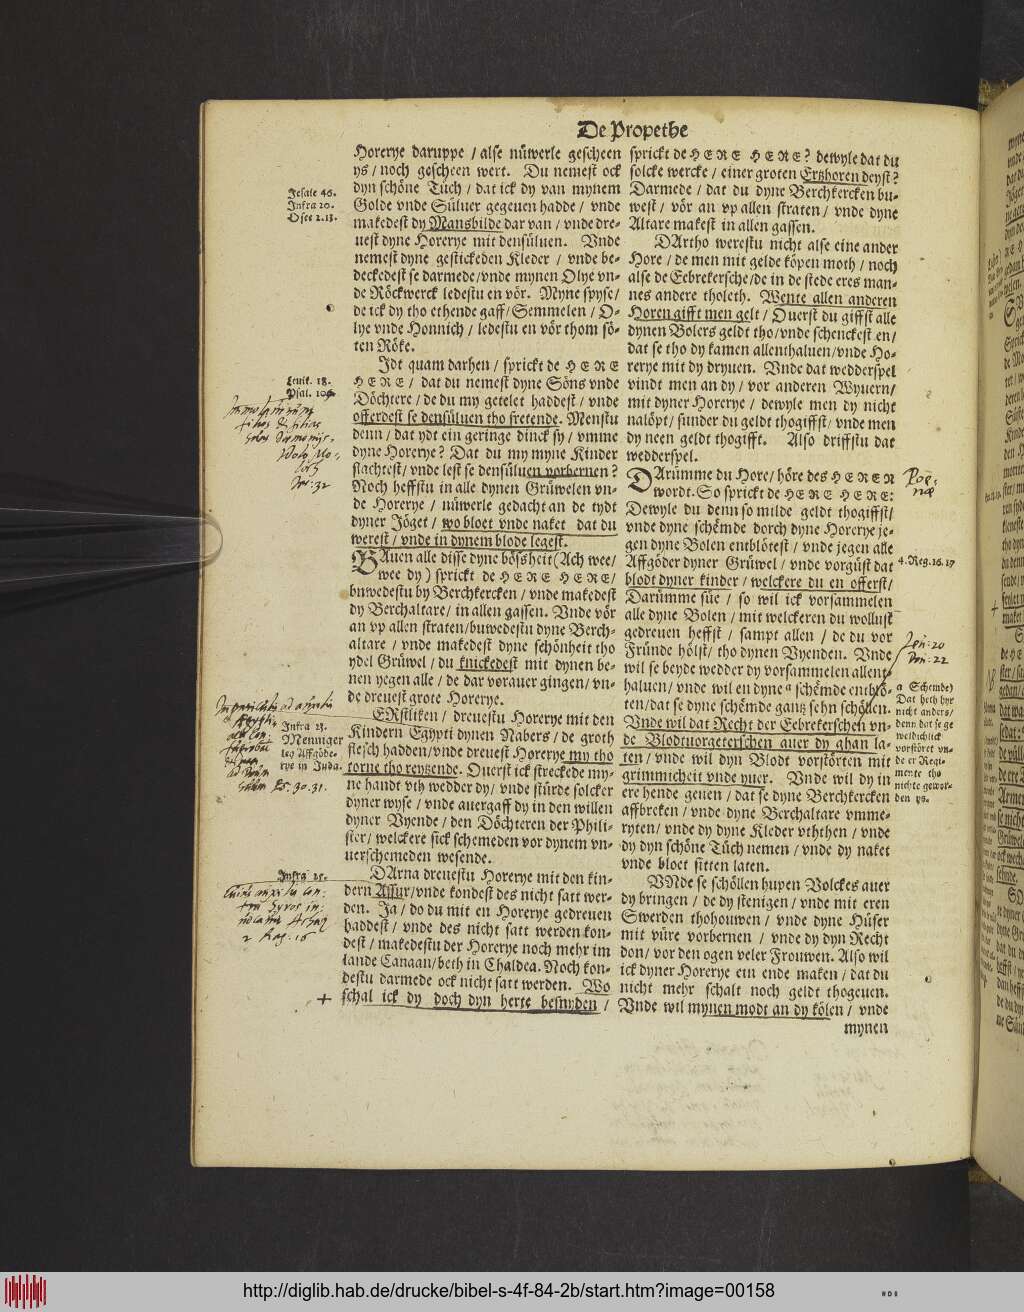 De Propethe
Horerye daruppe / alse nüwerle gescheen
ys / noch gescheen wert. Du nemest ock
dyn schöne Tüch / dat ick dy van mynem
Golde vnde Süluer gegeuen hadde / vnde
makedest dy Mansbilde dar van / vnde dre-
uest dyne Horerye mit densüluen. Vnde
nemest dyne gestickeden Kleder / vnde be-
deckedest se darmede / vnde mynen Olye vn-
de Röckwerck ledestu en vör. Myne spyse /
de ick dy tho ethende gaff / Semmelen / O-
lye vnde Honnich / ledestu en vör thom sö-
ten Röke.
Idt quam darhen / sprickt de HERE
HERE / dat du nemest dyne Söns vnde
Döchtere / de du my getelet haddest / vnde
offerdest se densüluen tho fretende. Menstu
denn / dat ydt ein geringe dinck sy / vmme
dyne Horerye? Dat du my myne Kinder
slachtest / vnde lest se densüluen vorbernen?
Noch heffstu in alle dynen Grüwelen vn-
de Horerye / nüwerle gedacht an de tydt
dyner Jöget / wo bloet vnde naket dat du
werest / vnde in dynem blode legest.
BAuen alle disse dyne bößheit (Ach wee /
wee dy) sprickt de HERE HERE /
buwedestu dy Berchkercken / vnde makedest
dy Berchaltare / in allen gassen. Vnde vör
an vp allen straten / buwedestu dyne Berch-
altare / vnde makedest dyne schönheit tho
ydel Grüwel / du knickedest mit dynen be-
nen yegen alle / de dar vorauer gingen / vn-
de dreuest grote Horerye.
ERstliken / dreuestu Horerye mit den
Kindern Egypti dynen Nabers / de groth
flesch hadden / vnde dreuest Horerye my tho
torne tho reytzende. Ouerst ick streckede my-
ne handt vth wedder dy / vnde stürde solcker
dyner wyse / vnde auergaff dy in den willen
dyner Vyende / den Döchteren der Phili-
ster / welckere sick schemeden vor dynem vn-
uerschemeden wesende.
DArna dreuestu Horerye mit den kin-
dern Assur / vnde kondest des nicht satt wer-
den. Ja / do du mit en Horerye gedreuen
haddest / vnde des nicht satt werden kon-
dest / makedestu der Horerye noch mehr im
lande Canaan / beth in Chaldea. Noch kon-
destu darmede ock nicht satt werden. Wo
schal ick dy doch dyn herte besnyden /
Jesaie 46.
Infra 20.
Osee 2.13.
Leuit. 18.
Psal. 106
Infra 23.
Menniger
ley Affgöde-
rye in Juda.
Infra 23.
sprickt de HERE HERE? dewyle dat du
solcke wercke / einer groten Ertzhoren deyst?
Darmede / dat du dyne Berchkercken bu-
west / vör an vp allen straten / vnde dyne
Altare makest in allen gassen.
DArtho werestu nicht alse eine ander
Hore / de men mit gelde köpen moth / noch
alse de Eebrekersche / de in de stede eres man-
nes andere tholeth. Wente allen anderen
Horen gifft men gelt / Ouerst du giffst alle
dynen Bolers geldt tho / vnde schenckest en /
dat se tho dy kamen allenthaluen / vnde Ho-
rerye mit dy dryuen. Vnde dat wedderspel
vindt men an dy / vor anderen Wyuern /
mit dyner Horerye / dewyle men dy nicht
nalöpt / sunder du geldt thogiffst / vnde men
dy neen geldt thogifft. Also driffstu dat
wedderspel.
DArümme du Hore / höre des HEREN
wordt. So sprickt de HERE HERE:
Dewyle du denn so milde geldt thogiffst /
vnde dyne schemde dorch dyne Horerye je-
gen dyne Bolen entblötest / vnde jegen alle
Affgöder dyner Grüwel / vnde vorgüst dat
blodt dyner kinder / welckere du en offerst /
Darümme süe / so wil ick vorsammelen
alle dyne Bolen / mit welckeren du wollust
gedreuen heffst / sampt allen / de du vor
Fründe hölst / tho dynen Vyenden. Vnde
wil se beyde wedder dy vorsammelen allent-
haluen / vnde wil en dyne a schemde entblö-
ten / dat se dyne schemde gantz sehn schöllen.
Vnde wil dat Recht der Eebrekerschen vn-
de Blodtuorgeterschen auer dy ghan la-
ten / vnde wil dyn Blodt vorstörten mit
grimmicheit vnde yuer. Vnde wil dy in
ere hende geuen / dat se dyne Berchkercken
affbreken / vnde dyne Berchaltare vmme-
ryten / vnde dy dyne Kleder vththen / vnde
dy dyn schöne Tüch nemen / vnde dy naket
vnde bloet sitten laten.
VNde se schöllen hupen Volckes auer
dy bringen / de dy stenigen / vnde mit eren
Swerden thohouwen / vnde dyne Hüser
mit vüre vorbernen / vnde dy dyn Recht
don / vor den ogen veler Frouwen. Also wil
ick dyner Horerye ein ende maken / dat du
nicht mehr schalt noch geldt thogeuen.
Vnde wil mynen modt an dy kölen / vnde
mynen
Poe-
næ
4. Reg. 16. 17
Jer: 20
a Schemde)
Dat heth hyr
nicht anders /
denn dat se ge
weldichlick
vorstöret vn-
de er Regi-
mente tho
nichte gewor-
den ys.
http://diglib.hab.de/drucke/bibel-s-4f-84-2b/start.htm?image=00158